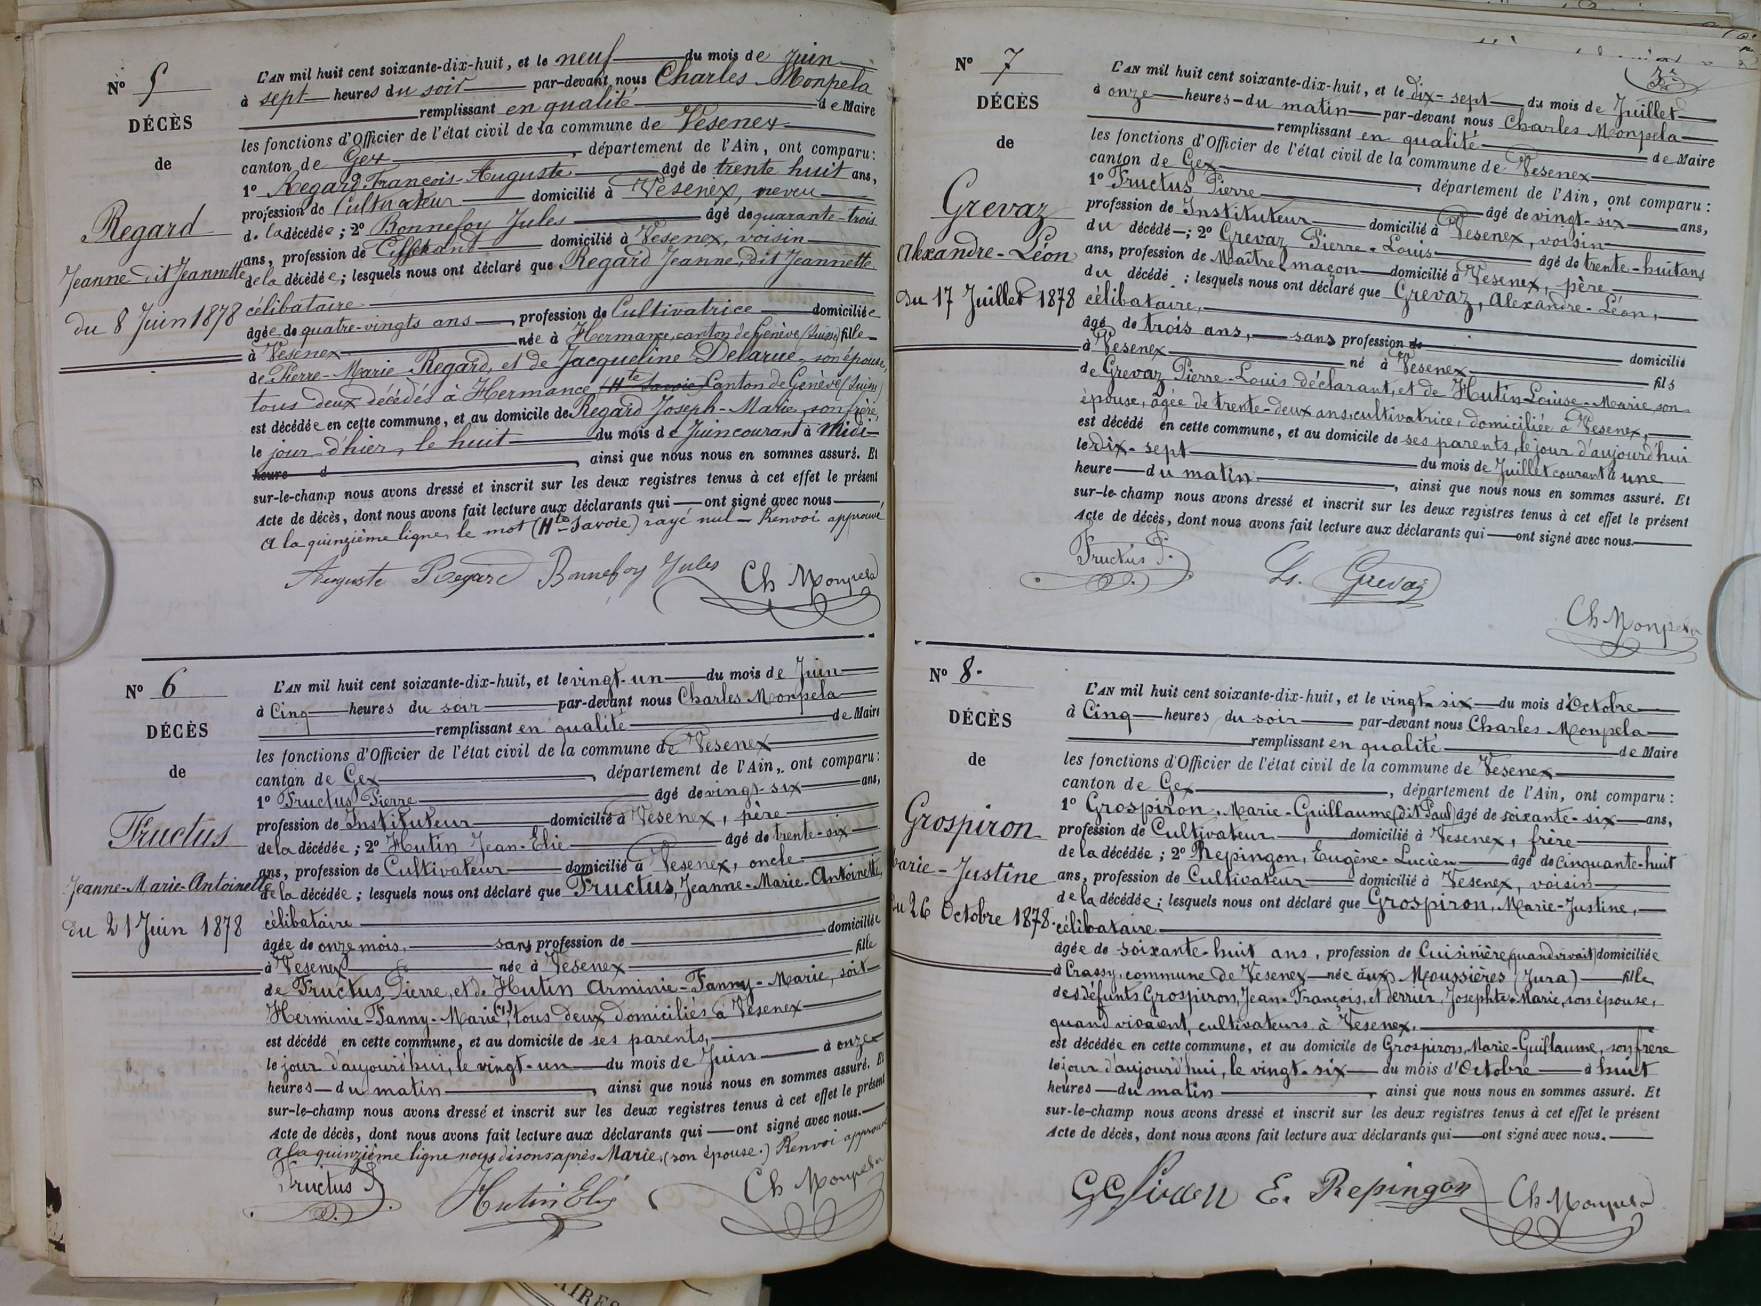 N° 5
DÉCÈS
de
Regard
Jeanne dit Jeannette
du 8 Juin 1878
L'AN mil huit cent soixante-dix-huit, et le neuf du mois de Juin
à sept heures du soir par-devant nous Charles Monpela
remplissant en qualité de Maire
les fonctions d'Officier de l'état civil de la commune de Vesenex
canton de Gex, département de l'Ain, ont comparu :
1° Regard François-Auguste âgé de trente huit ans,
profession de Cultivateur domicilié à Vesenex, neveu
de la décédée ; 2° Bonnefoy Jules âgé de quarante-trois
ans, profession de domicilié à Vesenex, voisin
de la décédée ; lesquels nous ont déclaré que Regard Jeanne, dit Jeannette
célibataire
âgée de quatre-vingts ans, profession de Cultivatrice domiciliée
à Vesenex née à Hermance, canton de Genève (Suisse) fille
de Pierre-Marie Regard, et de Jacqueline Delarue, son épouse,
tous deux décédés à Hermance (Hte Savoie) Canton de Genève (Suisse)
est décédée en cette commune, et au domicile de Regard Joseph-Marie, son frère,
le jour d'hier, le huit du mois de Juin courant à midi
heure d , ainsi que nous nous en sommes assuré. Et
sur-le-champ nous avons dressé et inscrit sur les deux registres tenus à cet effet le présent
Acte de décès, dont nous avons fait lecture aux déclarants qui ont signé avec nous
A la quinzième ligne, le mot (Hte-Savoie) rayé nul — Renvoi approuvé
Auguste Regard Bonnefoy Jules Ch Monpela
N° 6
DÉCÈS
de
Fructus
Jeanne-Marie-Antoinette
du 21 Juin 1878
L'AN mil huit cent soixante-dix-huit, et le vingt-un du mois de Juin
à Cinq heures du soir par-devant nous Charles Monpela
remplissant en qualité de Maire
les fonctions d'Officier de l'état civil de la commune de Vesenex
canton de Gex, département de l'Ain, ont comparu :
1° Fructus Pierre âgé de vingt-six ans,
profession de Instituteur domicilié à Vesenex, père
de la décédée ; 2° Hutin Jean-Elie âgé de trente-six
ans, profession de Cultivateur domicilié à Vesenex, oncle
de la décédée ; lesquels nous ont déclaré que Fructus, Jeanne-Marie-Antoinette,
célibataire
âgée de onze mois, sans profession de domiciliée
à Vesenex née à Vesenex fille
de Fructus, Pierre, et de Hutin Arminie-Fanny-Marie, soit
Herminie-Fanny-Marie (1), tous deux domiciliés à Vesenex
est décédé en cette commune, et au domicile de ses parents,
le jour d'aujourd'hui, le vingt-un du mois de Juin à onze
heures du matin, ainsi que nous nous en sommes assuré. Et
sur-le-champ nous avons dressé et inscrit sur les deux registres tenus à cet effet le présent
Acte de décès, dont nous avons fait lecture aux déclarants qui ont signé avec nous.
A la quinzième ligne nous disons après Marie, (son épouse.) Renvoi approuvé
Fructus P. Hutin Elie Ch Monpela
N° 7
DÉCÈS
de
Grevaz
Alexandre-Léon
du 17 Juillet 1878
L'AN mil huit cent soixante-dix-huit, et le dix-sept du mois de Juillet
à onze heures du matin par-devant nous Charles Monpela
remplissant en qualité de Maire
les fonctions d'Officier de l'état civil de la commune de Vesenex
canton de Gex, département de l'Ain, ont comparu :
1° Fructus Pierre âgé de vingt-six ans,
profession de Instituteur domicilié à Vesenex, voisin
du décédé ; 2° Grevaz Pierre-Louis âgé de trente-huit ans
ans, profession de Maître maçon domicilié à Vesenex, père
du décédé ; lesquels nous ont déclaré que Grevaz, Alexandre-Léon,
célibataire,
âgé de trois ans, sans profession de domicilié
à Vesenex né à Vesenex fils
de Grevaz Pierre-Louis déclarant, et de Hutin Louise-Marie son
épouse, âgée de trente-deux ans, cultivatrice, domiciliée à Vesenex,
est décédé en cette commune, et au domicile de ses parents, le jour d'aujourd'hui
le dix-sept du mois de Juillet courant à une
heure du matin, ainsi que nous nous en sommes assuré. Et
sur-le-champ nous avons dressé et inscrit sur les deux registres tenus à cet effet le présent
Acte de décès, dont nous avons fait lecture aux déclarants qui ont signé avec nous.
Fructus P. Ls. Grevaz
Ch Monpela
N° 8.
DÉCÈS
de
Grospiron
Marie-Justine
du 26 Octobre 1878.
L'AN mil huit cent soixante-dix-huit, et le vingt-six du mois d'Octobre
à Cinq heures du soir par-devant nous Charles Monpela
remplissant en qualité de Maire
les fonctions d'Officier de l'état civil de la commune de Vesenex
canton de Gex, département de l'Ain, ont comparu :
1° Grospiron, Marie-Guillaume (dit Paul) âgé de soixante-six ans,
profession de Cultivateur domicilié à Vesenex, frère
de la décédée ; 2° Repingon, Eugène-Lucien âgé de Cinquante-huit
ans, profession de Cultivateur domicilié à Vesenex, voisin
de la décédée ; lesquels nous ont déclaré que Grospiron, Marie-Justine,
célibataire
âgée de soixante-huit ans, profession de Cuisinière (quand vivait) domiciliée
à Crassy, commune de Vesenex née aux Moussières (Jura) fille
des défunts Grospiron, Jean-François, et Perrier, Josephte-Marie, son épouse,
quand vivaient, cultivateurs à Vesenex,
est décédée en cette commune, et au domicile de Grospiron, Marie-Guillaume, son frère
le jour d'aujourd'hui, le vingt-six du mois d'Octobre à huit
heures du matin, ainsi que nous nous en sommes assuré. Et
sur-le-champ nous avons dressé et inscrit sur les deux registres tenus à cet effet le présent
Acte de décès, dont nous avons fait lecture aux déclarants qui ont signé avec nous.
E. Repingon Ch Monpela